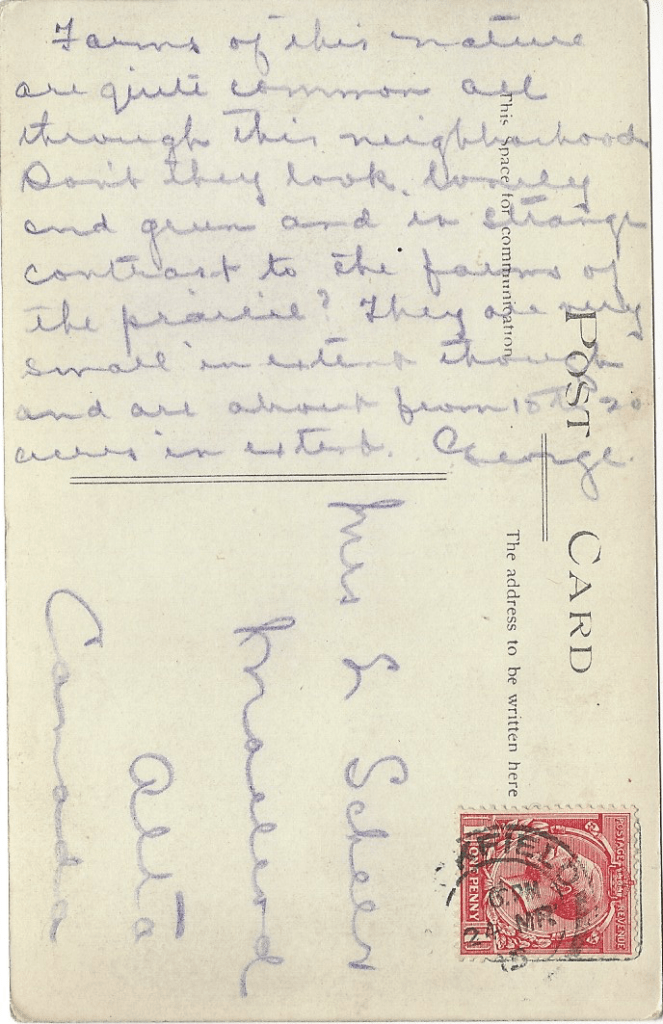 Farms of this nature
are quite common all
through this neighborhood
Don't they look lonely
and green and in strange
contrast to the farms of
the prairie? They are very
small in extent though
and are about from 15 to 20
acres in extent. George
POST CARD
This space for communication
The address to be written here
Mrs L Schell
Macleod
Alta
Canada
POSTAGE REVENUE
ONE PENNY
FIELD
24 MR